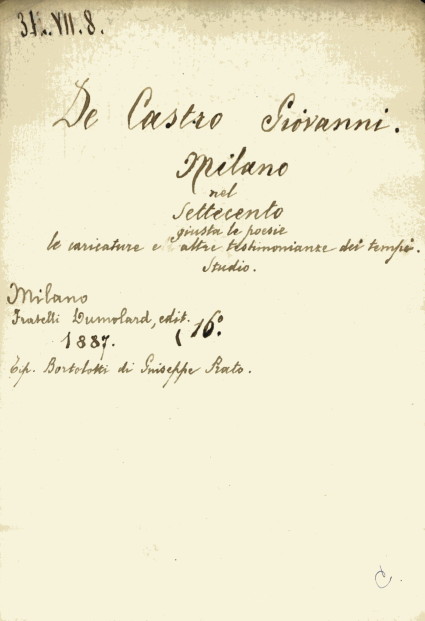 31..VII.8.
De Castro Giovanni.
Milano
nel
Settecento
giusta le poesie
le caricature e l'altre testimonianze dei tempi.
Studio.
Milano
Fratelli Dumolard, edit. (16.°
1887.
Tip. Bortolotti di Guiseppe Prato.
C.